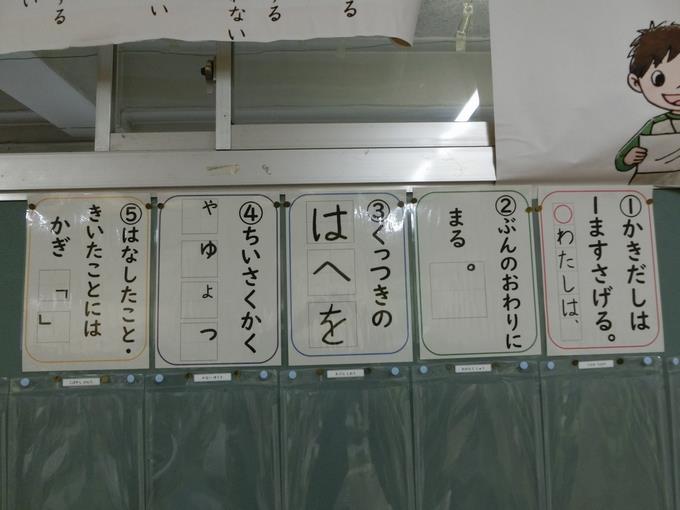 ①かきだしは
1ますさげる。
○わたしは、
②ぶんのおわりに
まる。
③くっつきの
は へ を
④ちいさくかく
ゃ ゅ ょ っ
⑤はなしたこと・
きいたことには
かぎ「」